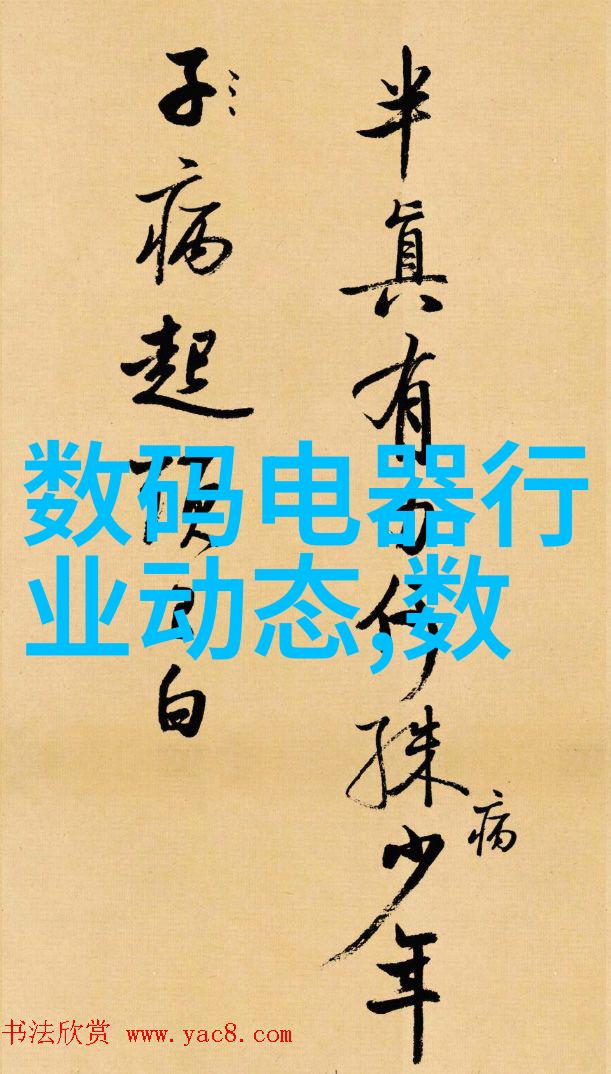 半真有力何殊少年
病
子病起頭已白
数码电器行
业动态,数
书法欣赏 www.yac8.com